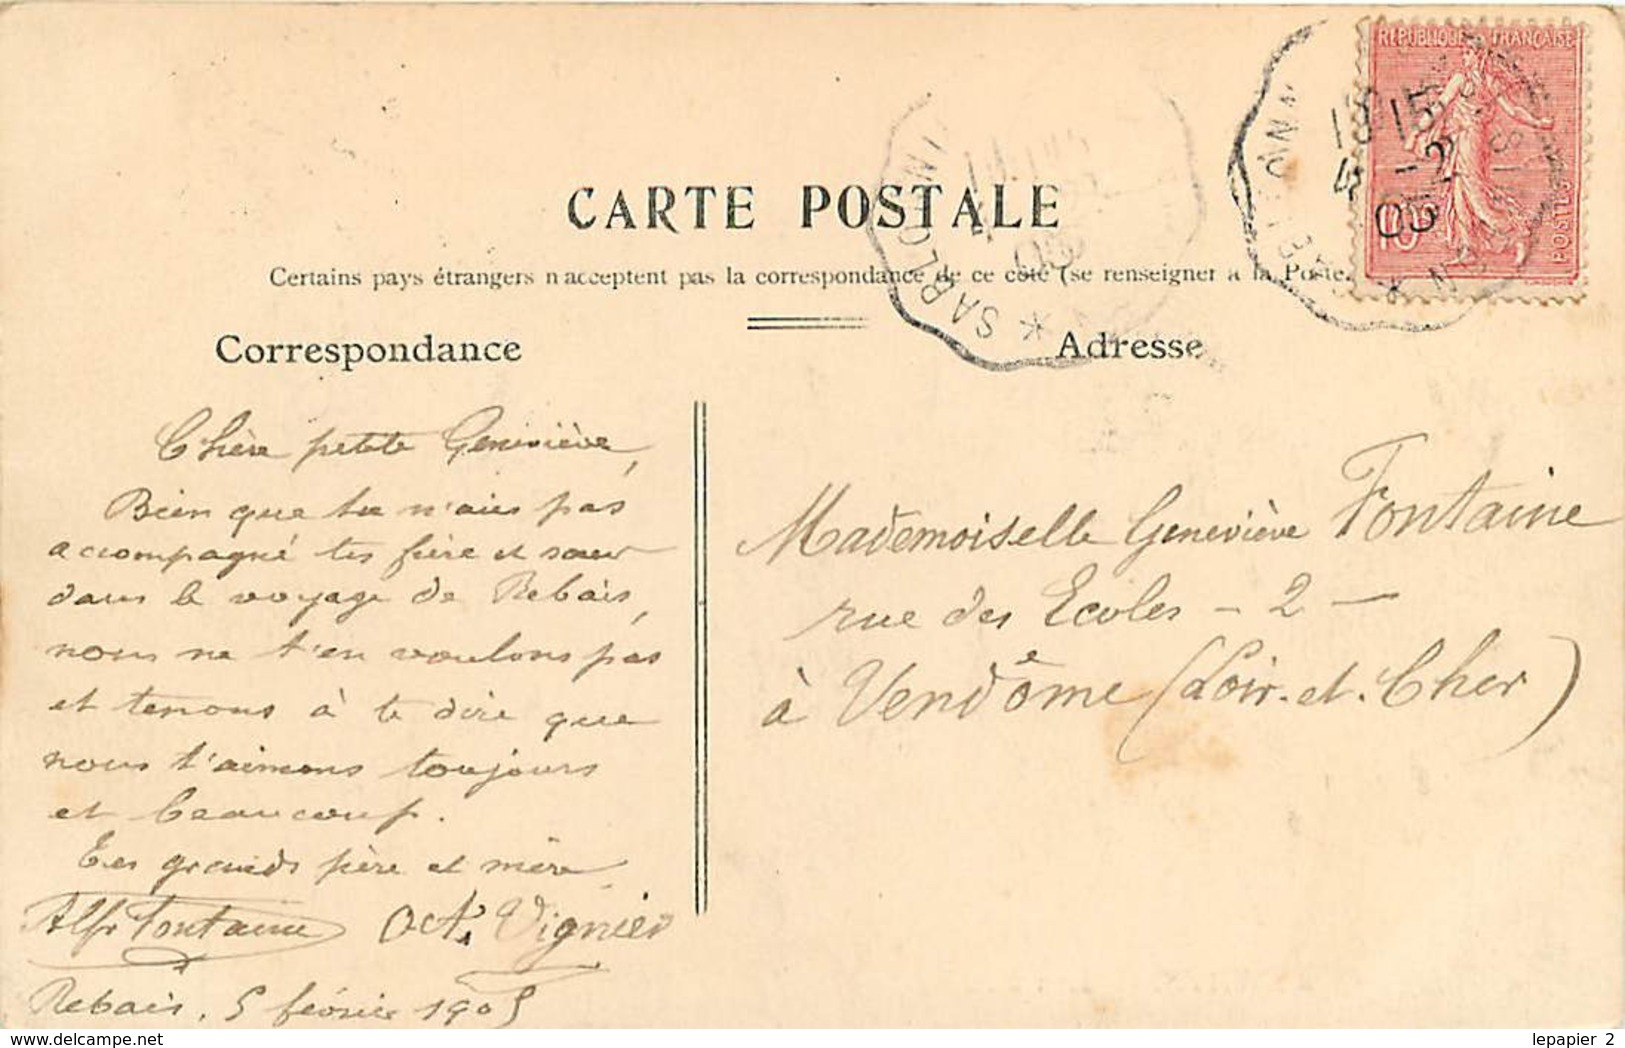 CARTE POSTALE
Certains pays étrangers n'acceptent pas la correspondance de ce côté (se renseigner à la Poste.
Correspondance
Adresse
Chère petite Geneviève,
Bien que tu n'aies pas
accompagné tes frère et sœur
dans le voyage de Rebais,
nous ne t'en voulons pas
et tenons à te dire que
nous t'aimons toujours
et beaucoup.
Tes grands père et mère
Alf Fontaine Oct. Vignier
Rebais, 5 février 1905
Mademoiselle Geneviève Fontaine
rue des Ecoles - 2 -
à Vendôme (Loir-et-Cher)
REPUBLIQUE FRANÇAISE
10
POSTES
* SABLONN
15
-2
05
lepapier_2